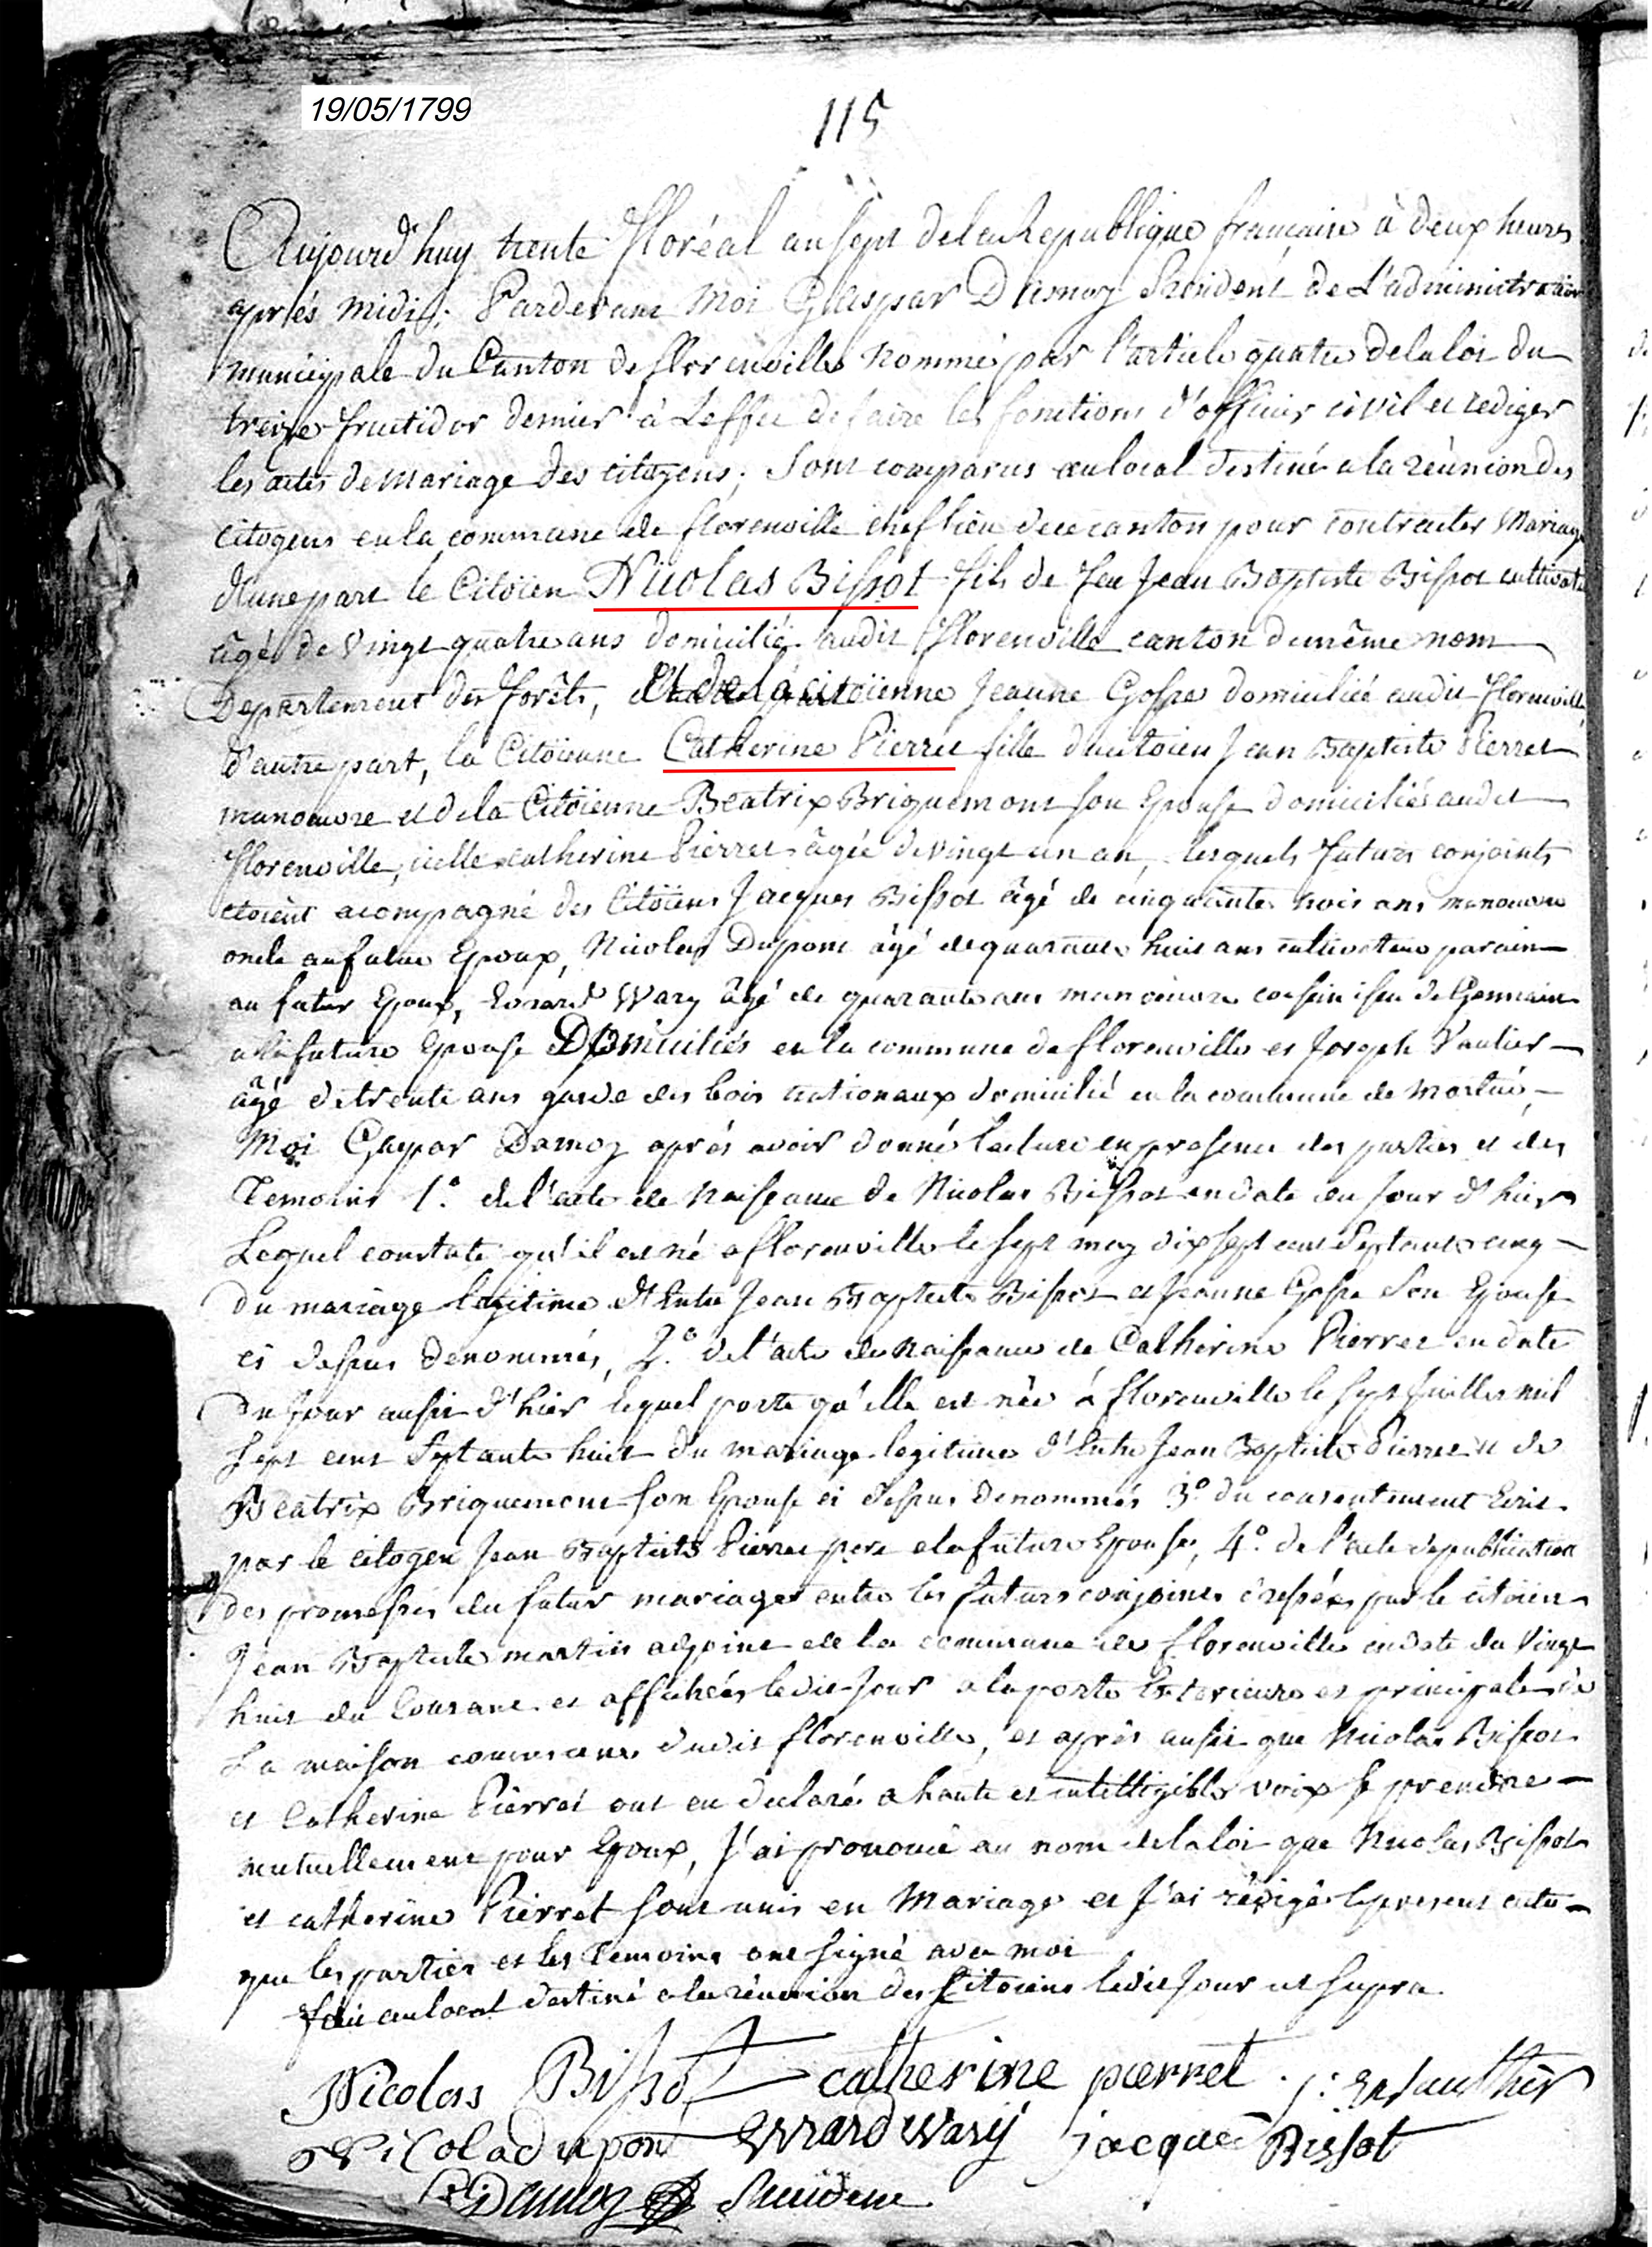 19/05/1799
115
Aujourd'huy trente floréal an sept de la Republique francaise à deux heures
aprés midi; Pardevant Moi Gaspar Damoy President de L'administration
municipale du Canton de florenville nommé par l'article quatre de la loi du
treize fructidor dernier à L'effet de faire les fonctions d'officier civil et rediger
les actes de Mariage des citoyens; Sont comparus au local destiné a la réunion des
citoyens en la commune de florenville chef lieu de ce canton pour contracter Mariage
d'une part le Citoïen Nicolas Bissot fils de feu Jean Baptiste Bissot cultivateur
âgé de Vingt quatre ans domicilié audit florenville canton du même nom
Departement des forêts, Et de la citoïenne Jeanne Gosse domiciliée audit florenville
d'autre part, la Citoïenne Catherine Pierret fille du citoien Jean Baptiste Pierret
manoeuvre et de la Citoïenne Beatrix Briquemont son Epouse domiciliés audit
florenville, icelle catherine Pierret âgée de vingt un an, lesquels futurs conjoints
etoient acompagné des Citoïens Jacques Bissot âgé de cinquante trois ans manoeuvre
oncle au futur Epoux, Nicolas Dupont âgé de quarante huit ans cultivateur parain
au futur Epoux, Evrard Wary âgé de quarante ans manoeuvre cousin issu de Germain
a la future Epouse Domiciliés en la commune de florenville et Joseph Vautier
âgé de trente ans garde des bois nationaux domicilié en la commune de Mortué,
Moi Gaspar Damoy aprés avoir donné lecture en presence des parties et des
Temoins 1.° de l'acte de Naissance de Nicolas Bissot en date du jour d'hier
Lequel constate qu'il est né a florenville le sept may dix sept cent Septante cinq
du mariage legitime d'Entre Jean Baptiste Bissot et Jeanne Gosse Son Epouse
ci dessus denommés, 2.° de l'acte de Naissance de Catherine Pierret en date
du Jour aussi d'hier lequel porte qu'elle est née à florenville le sept juillet mil
sept cent Septante huit du mariage legitime d'Entre Jean Baptiste Pierret et de
Beatrix Briquemont son Epouse ci dessus denommés 3.° du consentement Ecrit
par le citoyen Jean Baptiste Pierret pere de la future Epouse, 4.° de l'acte de publication
des promesses du futur mariage entre les futurs conjoints dressée par le citoïen
Jean Baptiste martin adjoint de la commune de florenville en date du Vingt
huit du Courant et affichées ledit Jour a la porte Exterieure et principale de
La maison commune dudit florenville, et aprés aussi que Nicolas Bissot
et Catherine Pierret ont eu declaré a haute et intelligible voix se prendre
mutuellement pour Epoux, J'ai prononcé au nom de la loi que Nicolas Bissot
et catherine Pierret sont unis en Mariage et J'ai rédigé le present acte
que les parties et les Temoins ont signé avec moi
fait au local destiné a la réunion des Citoiens ledit Jour ut supra
Nicolas Bissot catherine pierret
Nicola dupont Evrard Wary jacque Bissot
Damoy President